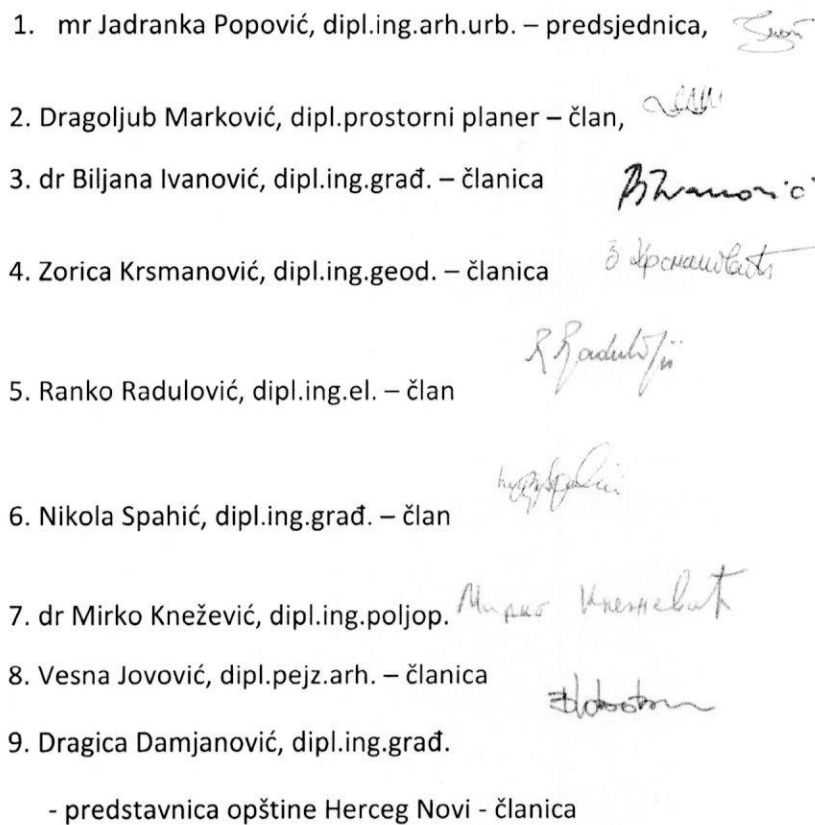 1. mr Jadranka Popović, dipl.ing.arh.urb. – predsjednica,
2. Dragoljub Marković, dipl.prostorni planer – član,
3. dr Biljana Ivanović, dipl.ing.građ. – članica BIvanović
4. Zorica Krsmanović, dipl.ing.geod. – članica З Крсмановић
5. Ranko Radulović, dipl.ing.el. – član R Radulović
6. Nikola Spahić, dipl.ing.građ. – član
7. dr Mirko Knežević, dipl.ing.poljop. Мирко Кнежевић
8. Vesna Jovović, dipl.pejz.arh. – članica
9. Dragica Damjanović, dipl.ing.građ.
- predstavnica opštine Herceg Novi - članica